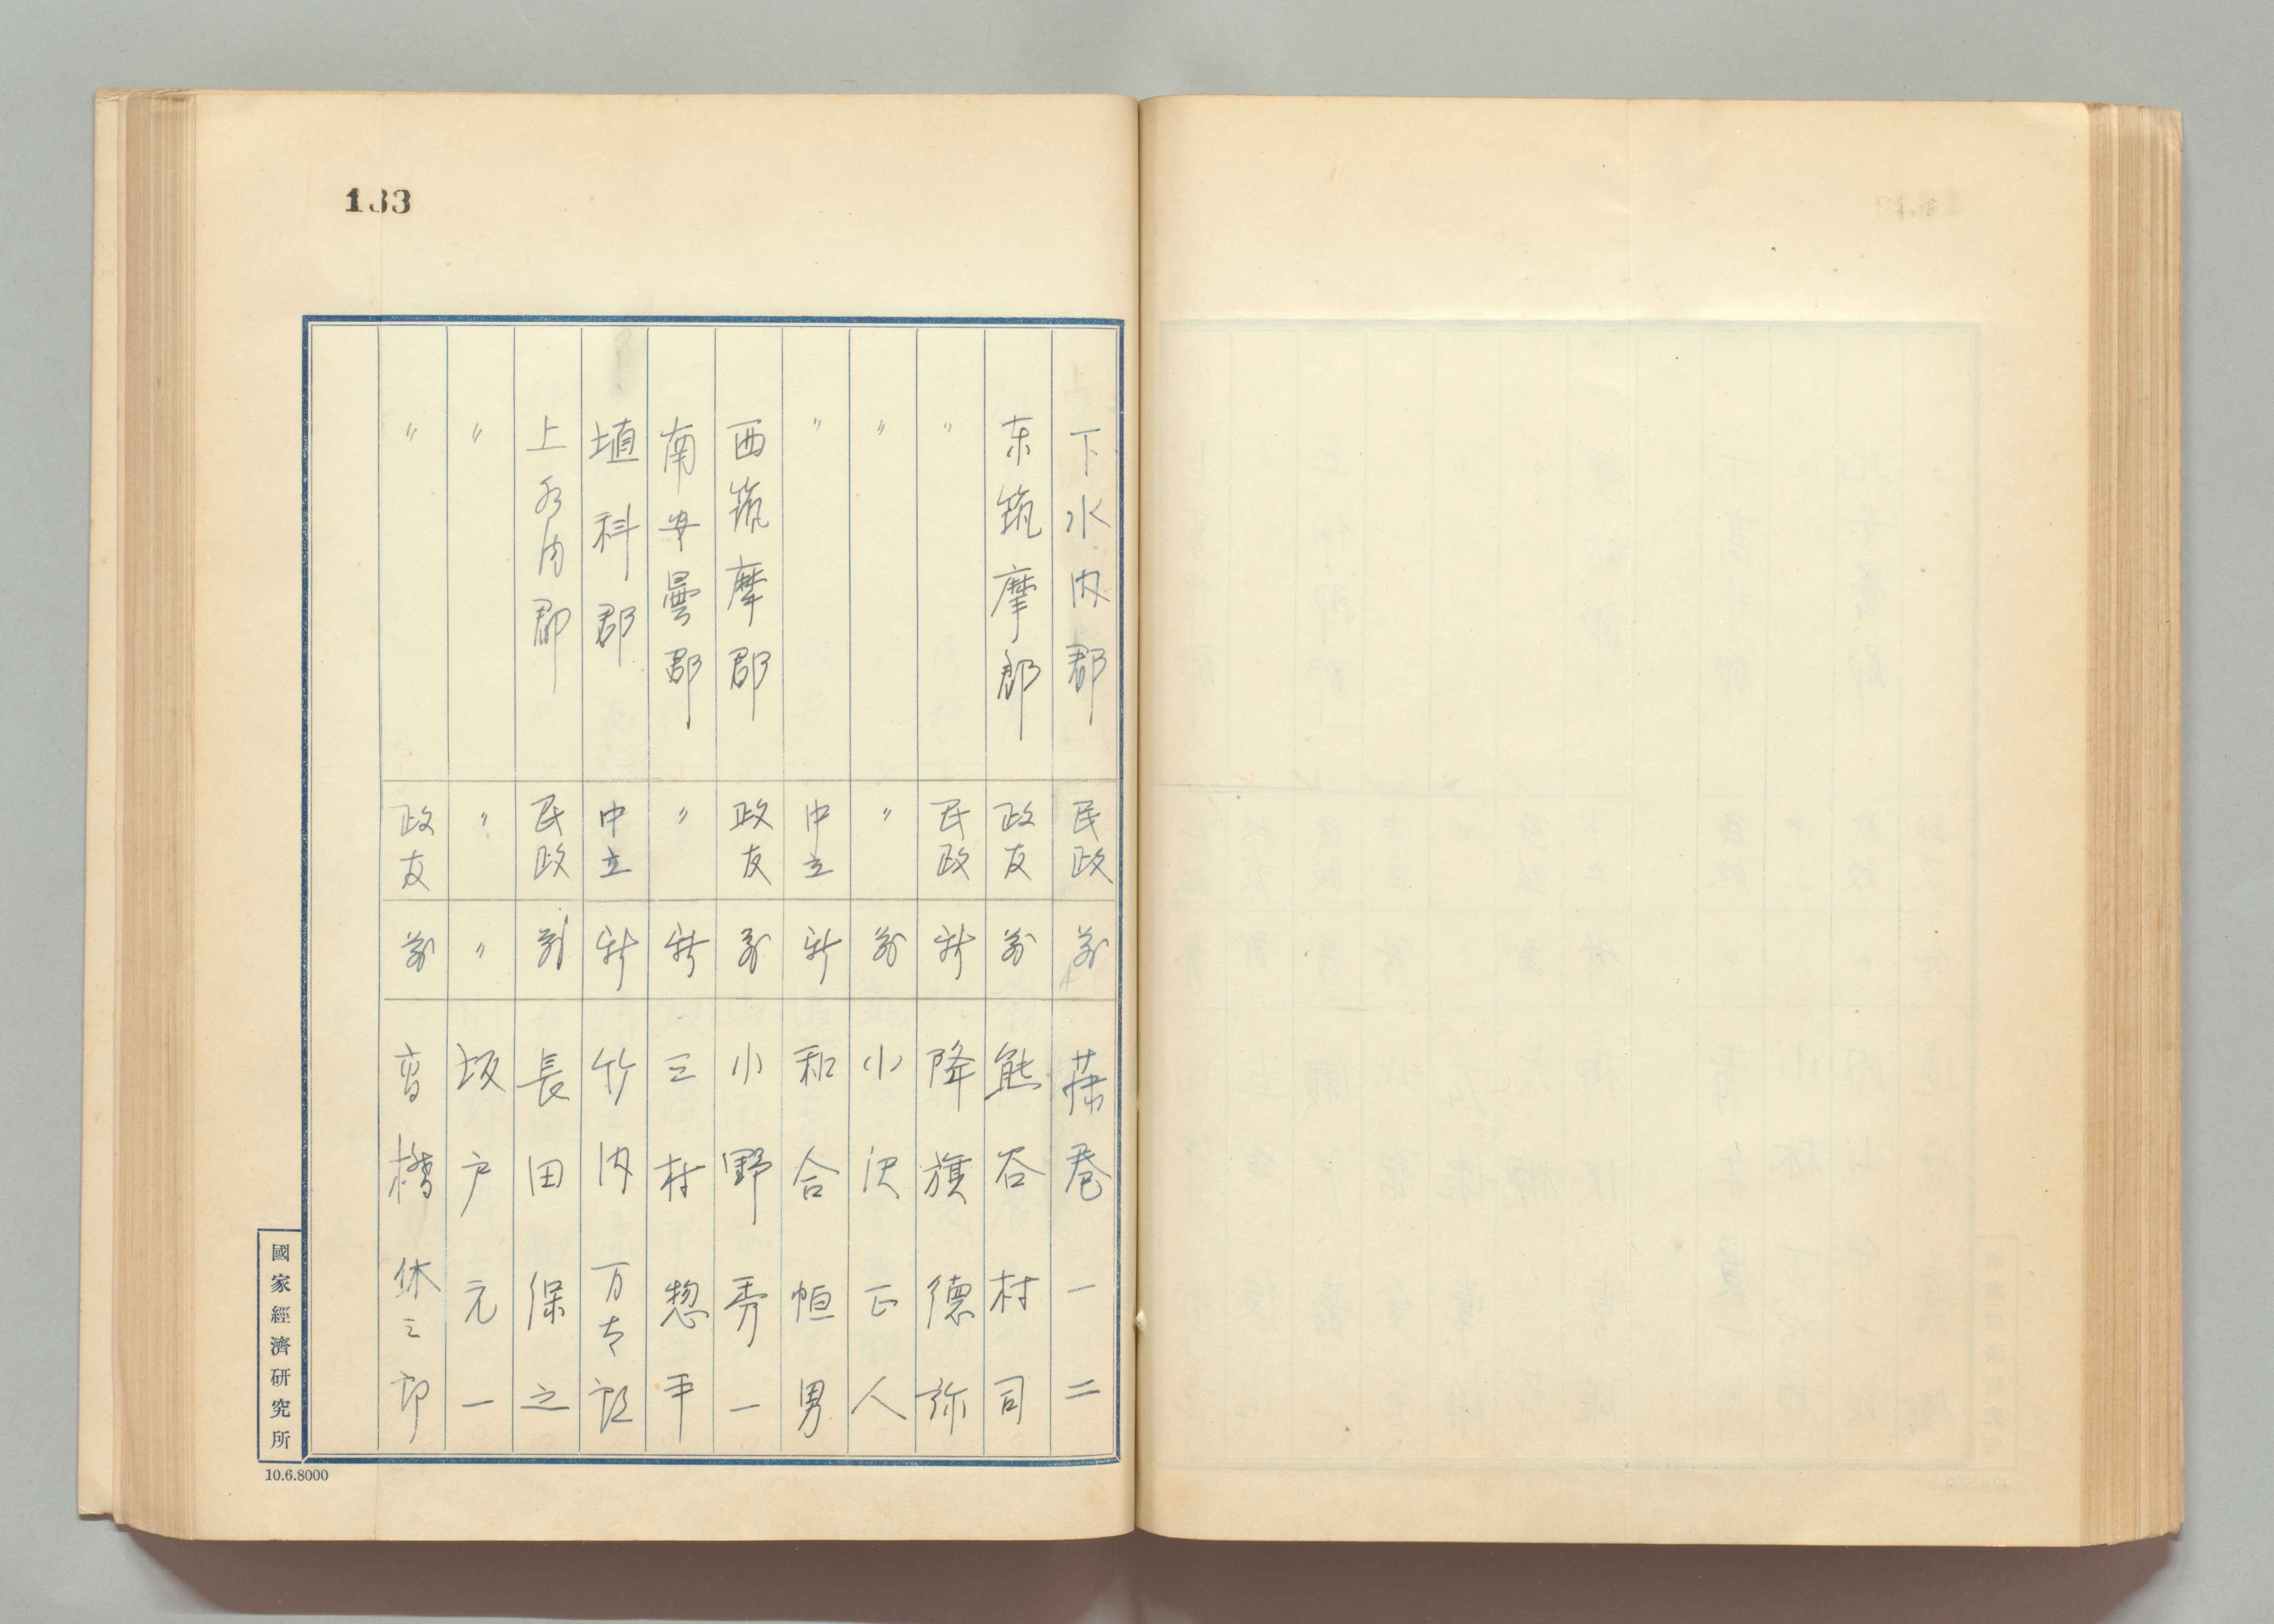 133
下水内郡 民政 前 藤巻一二
东筑摩郡 政友 前 熊谷村司
〃 民政 新 降旗徳弥
〃 〃 前 小沢正人
〃 中立 新 和合恒男
西筑摩郡 政友 前 小野秀一
南安曇郡 〃 新 三村惣平
埴科郡 中立 新 竹内万太郎
上水内郡 民政 前 長田保之
〃 〃 〃 坂戸元一
〃 政友 前 高橋休三郎
國家經濟研究所
10.6.8000